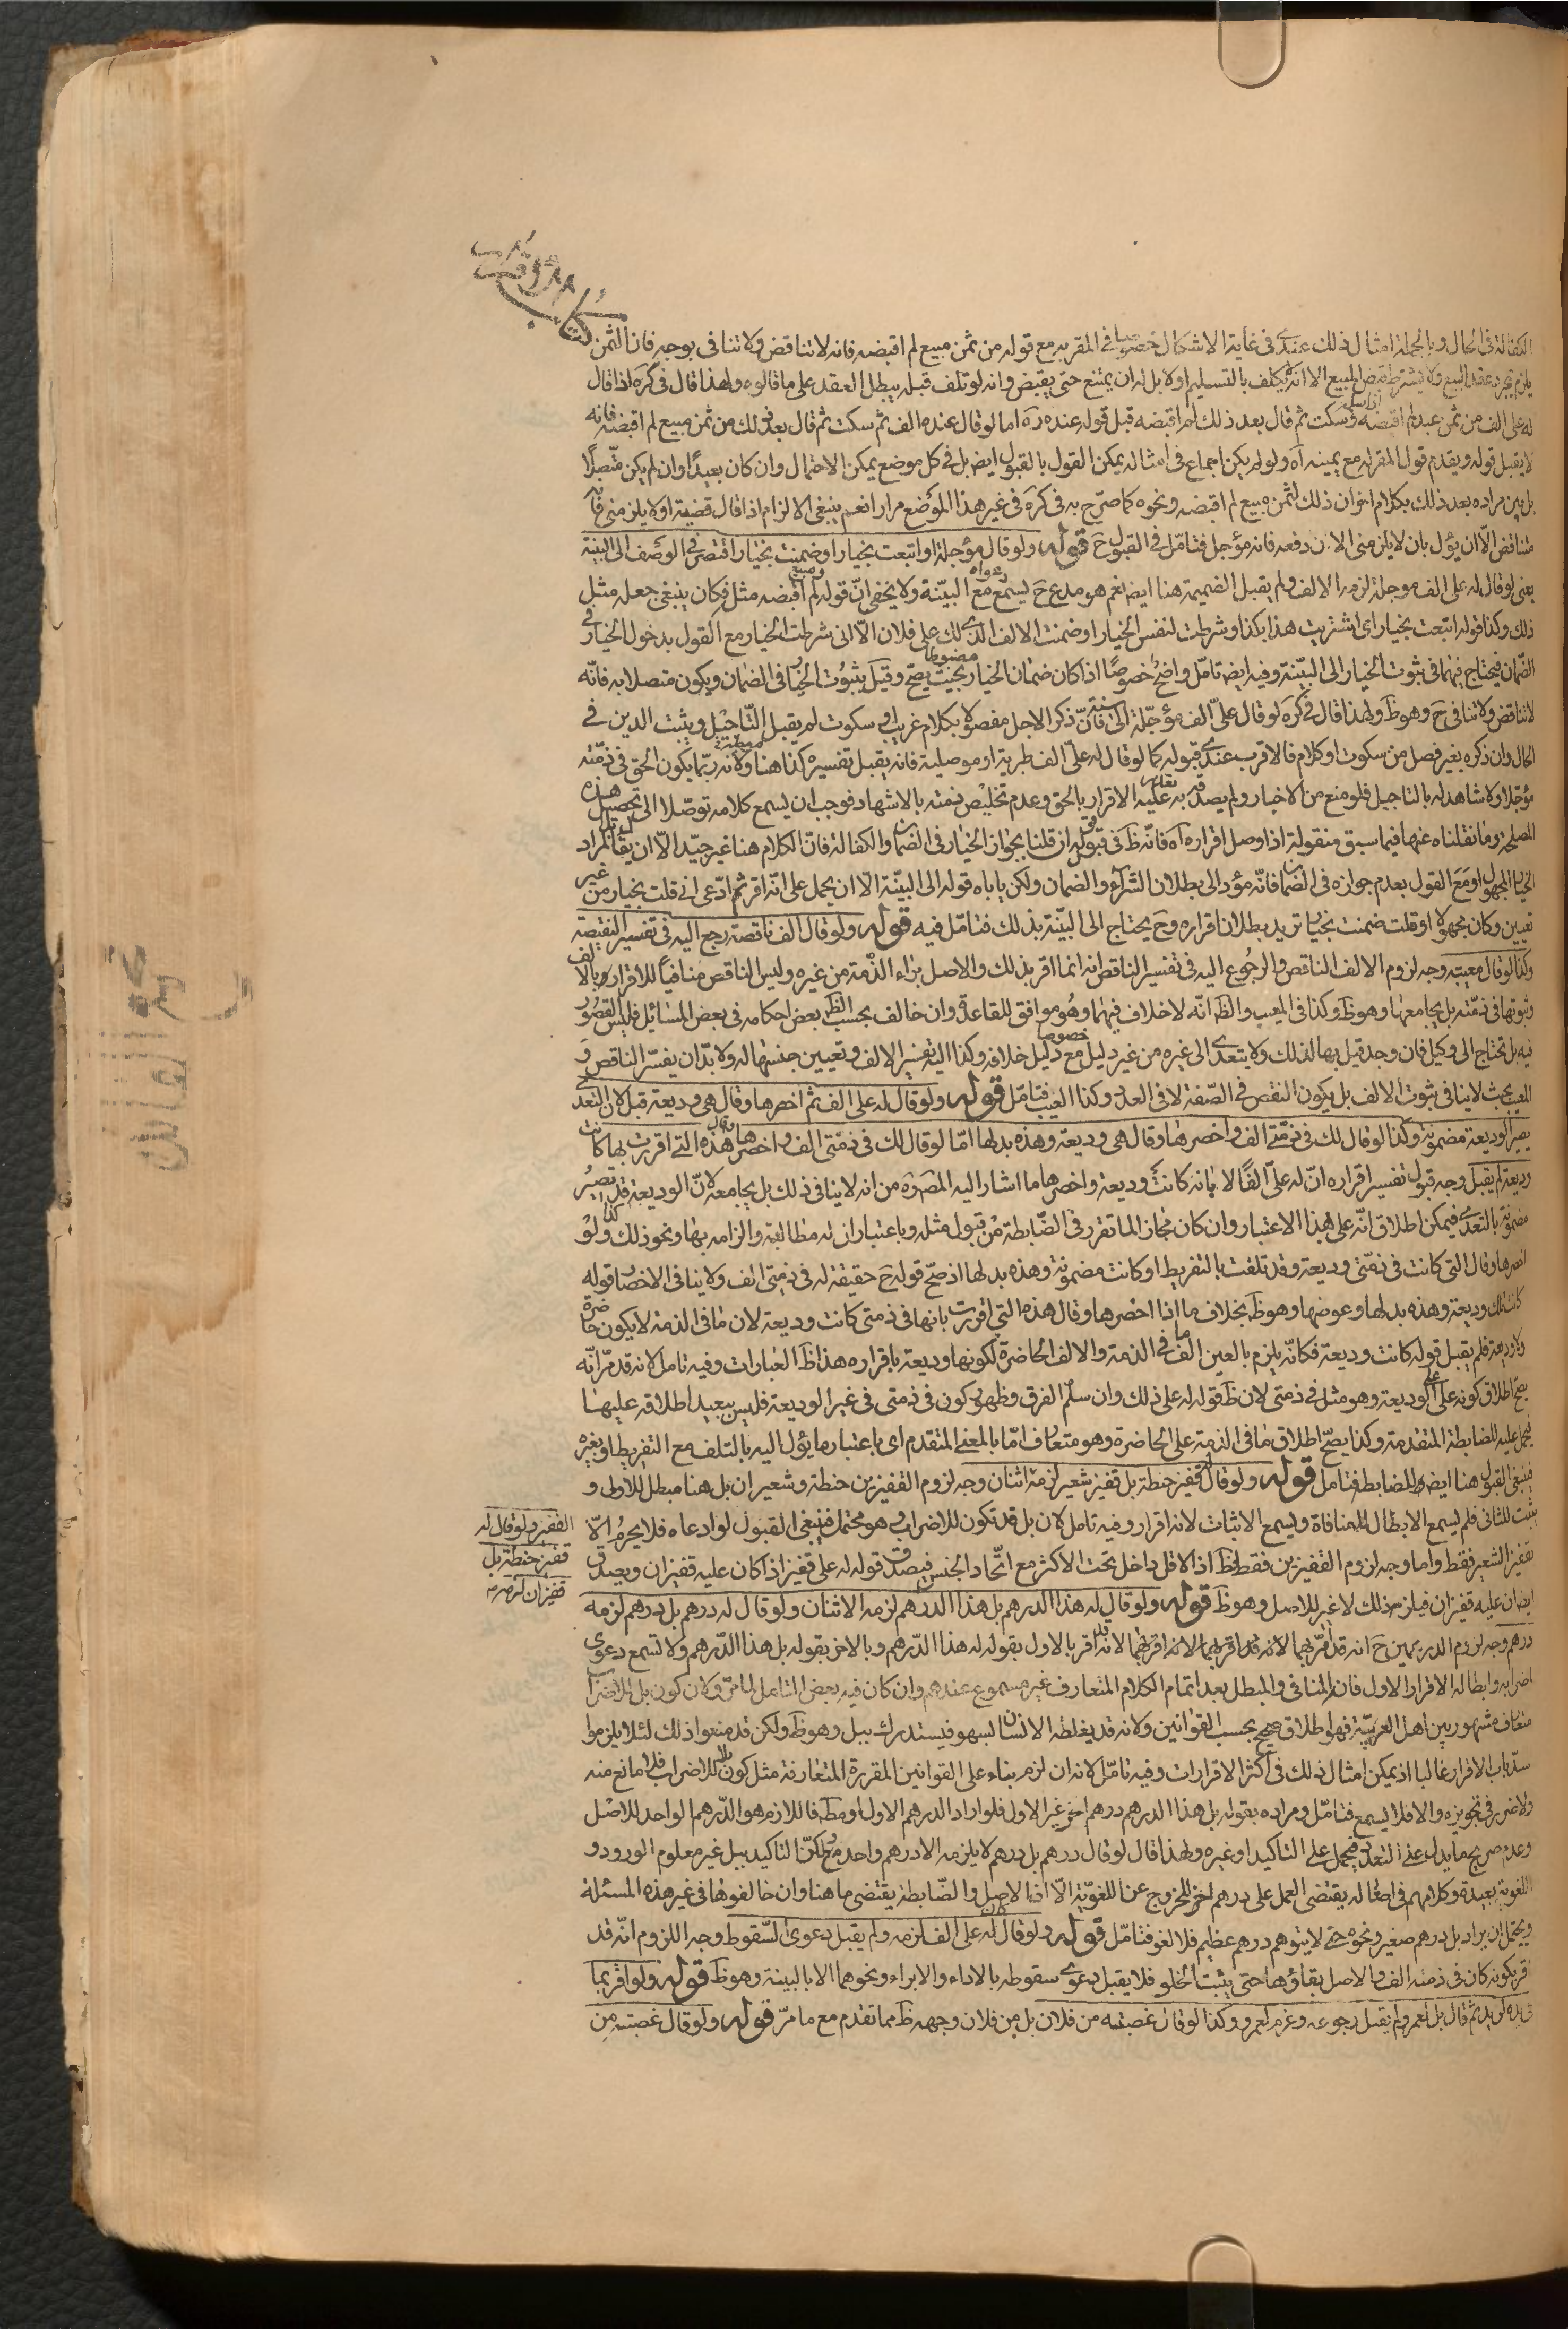 كتاب الاقرار
الكفالة فى الحال وبالجملة امثال ذلك عندى فى غاية الاشكال خصوصا فى المقر به مع قوله من ثمن مبيع لم اقبضه فانه لا تناقض ولا تنافى بوجه فان الثمن
يلزم بمجرد عقد البيع ولا يشترط قبض المبيع الا انه لا يكلف بالتسليم اولا بل له ان يمتنع حتى يقبض وانه لو تلف قبله يبطل العقد على ما قالوه ولهذا قال فى كره اذا قال
له على الف من ثمن عبد لم اقبضه وسكت ثم قال بعد ذلك لم اقبضه قبل قوله عنده ره اما لو قال عنده الف ثم سكت ثم قال بعد ذلك من ثمن مبيع لم اقبضه فانه
لا يقبل قوله ويقدم قول المقر له مع يمينه اه ولو لم يكن اجماع فى امثاله يمكن القول بالقبول ايض بل فى كل موضع يمكن الاحتمال وان كان بعيدا وان لم يكن متصلا
بل يبين مراده بعد ذلك بكلام اخر ان ذلك لثمن مبيع لم اقبضه ونحوه كما صرح به فى كره فى غير هذا الموضع مرارا نعم ينبغى الالزام اذا قال قضيته او لا يلزمنى فانه
متناقض الا ان يؤل بان لا يلزمنى الان دفعه فانه مؤجل فتامل فى القبول ح قوله ولو قال مؤجلة او ابتعت بخيار او ضمنت بخيار افتقر فى الوصف الى البينة
يعنى لو قال له على الف موجلة لزمه الالف ولم يقبل الضميمة هنا ايض نعم هو مدع ح يسمع دعواه مع البينة ولا يخفى ان قوله لم اقبضه مثل فكان ينبغى جعله مثل
ذلك وكذا قوله ابتعت بخيار اى اشتريت هذا بكذا وشرطت لنفس الخيار او ضمنت الالف الذى لك على فلان الا انى شرطت الخيار مع القول بدخول الخيار فى
الضمان فيحتاج فيهما فى ثبوت الخيار الى البينة وفيه ايض تامل واضح خصوصا اذا كان ضمان الخيار مضبوطا بحيث يصح وقيل بثبوت الخيار فى الضمان ويكون متصلا به فانه
لا تناقض ولا تنافى ح وهو ظ ولهذا قال فى كره لو قال على الف مؤجلة الى سنة فان ذكر الاجل مفصولا بكلام غريب او سكوت لم يقبل التاجيل ويثبت الدين فى
الحال وان ذكره بغير فصل من سكوت او كلام فالاقرب عندى قبوله كما لو قال له على الف طبرية او موصلية فانه يقبل تفسيره كذا هنا ولانه ربما يكون الحق فى ذمته
مؤجلا ولا شاهد له بالتاجيل فلو منع من الاخبار ولم يصدق به تعذر عليه الاقرار بالحق وعدم تخليص ذمته بالاشهاد فوجب ان يسمع كلامه توصلا الى تحصيل هذه
المصلحة وما نقلناه عنها فيما سبق من قوله اذا وصل اقراره اه فانه ظ فى قبوله ان قلنا بجواز الخيار فى الضمان والكفالة فان الكلام هنا غير جيد الا ان يقال المراد
الخيار المجهول او مع القول بعدم جوازه فى الضمان فانه مؤد الى بطلان الشراء والضمان ولكن ياباه قوله الى البينة الا ان يحمل على انه اقر ثم ادعى انى قلت بخيار من غير
تعيين وكان مجهولا او قلت ضمنت بخيار تريد بطلان اقراره وح يحتاج الى البينة بذلك فتامل فيه قوله ولو قال الف ناقصة رجع اليه فى تفسير النقيصة
وكذا لو قال معيبة وجه لزوم الالف الناقص والرجوع اليه فى تفسير الناقص انه انما اقر بذلك والاصل براءة الذمة من غيره وليس الناقص منافيا للاقرار بالالف
وثبوتها فى ذمته بل يجامعها وهو ظ وكذا فى المعيب والظ انه لا خلاف فيهما وهو موافق للقاعدة وان خالف بحسب الظ بعض احكامه فى بعض المسائل فليس القصور
فيه بل تحتاج الى دليل فان وجد قيل بها لذلك ولا يتعدى الى غيره من غير دليل خصوصا مع دليل خلافه وكذا اليه تفسير الالف وتعيين جنسها له ولا بد ان يفسر الناقص و
المعيب بحيث لا ينافى ثبوت الالف بل يكون النقص فى الصفة لا فى العدد وكذا العيب فتامل قوله ولو قال له على الف ثم احضرها وقال هى وديعة قبل لان التعدى
يصير الوديعة مضمونة وكذا لو قال لك فى ذمتى الف واحضرها وقال هى وديعة وهذه بدلها اما لو قال لك فى ذمتى الف واحضرها وقال هذه التى اقررت بها كانت
وديعة لم يقبل وجه قبول تفسير اقراره ان له على الفا لا بانه كانت وديعة واحضرها ما اشار اليه المص ره من انه لا ينافى ذلك بل يجامعه لان الوديعة قد تصير
مضمونة بالتعدى فيمكن اطلاق انه على بهذا الاعتبار وان كان مجازا لما تقرر فى الضابطة من قبول مثله وباعتبار ان له مطالبته والزامه بها ونحو ذلك وكذا لو
احضرها وقال التى كانت فى ذمتى وديعة وقد تلفت بالتفريط او كانت مضمونة وهذه بدلها اذ صح قوله ح حقيقة له فى ذمتى الف ولا ينافى الاحضار قوله
كانت تلك وديعة وهذه بدلها وعوضها وهو ظ بخلاف ما اذا احضرها وقال هذه التى اقررت بانها فى ذمتى كانت وديعة لان ما فى الذمة لا يكون حاضرة
ولا وديعة فلم يقبل قوله كانت وديعة فكانه يلزم بالعين الف ما فى الذمة والالف الحاضرة لكونها وديعة باقراره هذا ظ العبارات وفيه تامل لانه قد مر انه
يصح اطلاق كونه على الوديعة وهو مثل فى ذمتى لان ظ قوله له على ذلك وان سلم الفرق وظهور كون فى ذمتى فى غير الوديعة فليس ببعيد اطلاقه عليها
فيحمل عليه للضابطة المتقدمة وكذا يصح اطلاق ما فى الذمة على الحاضرة وهو متعارف اما بالمعنى المتقدم اى باعتبار ما يؤل اليه بالتلف مع التفريط او بغيره
فينبغى القبول هنا ايض للضابطة فتامل قوله ولو قال له قفيز حنطة بل قفيز شعير لزمه اثنان وجه لزوم القفيزين حنطة وشعير ان بل هنا مبطل للاولى و
يثبت للثانى فلم يسمع الابطال للمنافاة ويسمع الاثبات لانه اقرار وفيه تامل لان بل قد تكون للاضراب وهو محتمل فينبغى القبول لو ادعاه فلا يحرم الا
القفيز ولو قال له
قفيز حنطة بل
قفيزان لزمه
بقفيز الشعير فقط واما وجه لزوم القفيزين فقط فظ اذ الاقل داخل تحت الاكثر مع اتحاد الجنس فيصدق قوله له على قفيز اذا كان عليه قفيزان ويصدق
ايض ان عليه قفيزان فيلزمه ذلك لا غير للاصل وهو ظ قوله ولو قال له هذا الدرهم بل هذا الدرهم لزمه الاثنان ولو قال له درهم بل درهم لزمه
درهم وجه لزوم الدرهمين ح انه قد اقر بهما لانه قد اقر بالاول بقوله له هذا الدرهم وبالاخر بقوله بل هذا الدرهم ولا تسمع دعوى
اضرابه وابطاله الاقرار الاول فان المنافى والمبطل بعد اتمام الكلام المتعارف غير مسموع عندهم وان كان فيه بعض التامل لما مر ولان كون بل للاضراب
متعارف مشهور بين اهل العربية فهو اطلاق صحيح بحسب القوانين ولانه قد يغلطه الانسان لسهو فيستدرك ببل وهو ظ ولكن قد منعوا ذلك لئلا يلزموا
سد باب الاقرار غالبا اذ يمكن امثال ذلك فى اكثر الاقرارات وفيه تامل لانه ان لزم بناء على القوانين المقررة المتعارفة مثل كون بل للاضراب فلا مانع منه
ولا ضرر فى تجويزه والا فلا يسمع فتامل ومراده بقوله بل هذا الدرهم درهم اخر غير الاول فلو اراد الدرهم الاول او مط فاللازم هو الدرهم الواحد للاصل
وعدم صريح ما يدل على التعدد فيحمل على التاكيد او غيره ولهذا قال لو قال درهم بل درهم لا يلزمه الا درهم واحد لكن التاكيد ببل غير معلوم الورود و
اللغوية بعيدة وكلامهم فى امثاله يقتضى العمل على درهم اخر للخروج عن اللغوية الا ان الاصل والضابطة يقتضى ما هنا وان خالفوها فى غير هذه المسئلة
ويحتمل ان يراد بل درهم صغير ونحوه حتى لا يتوهم درهم عظيم فلا لغو فتامل قوله ولو قال كان له على الف لزمه ولم يقبل دعوى السقوط وجه اللزوم انه قد
اقر بكونه كان فى ذمته الف والاصل بقاؤها حتى يثبت الخلو فلا يقبل دعوى سقوطه بالاداء والابراء ونحوهما الا بالبينة وهو ظ قوله ولو اقر بما
فى يده لزيد ثم قال بل لعمرو لم يقبل رجوعه وغرم لعمرو وكذا لو قال غصبته من فلان بل من فلان وجهه ظ مما تقدم مع ما مر قوله ولو قال غصبته من